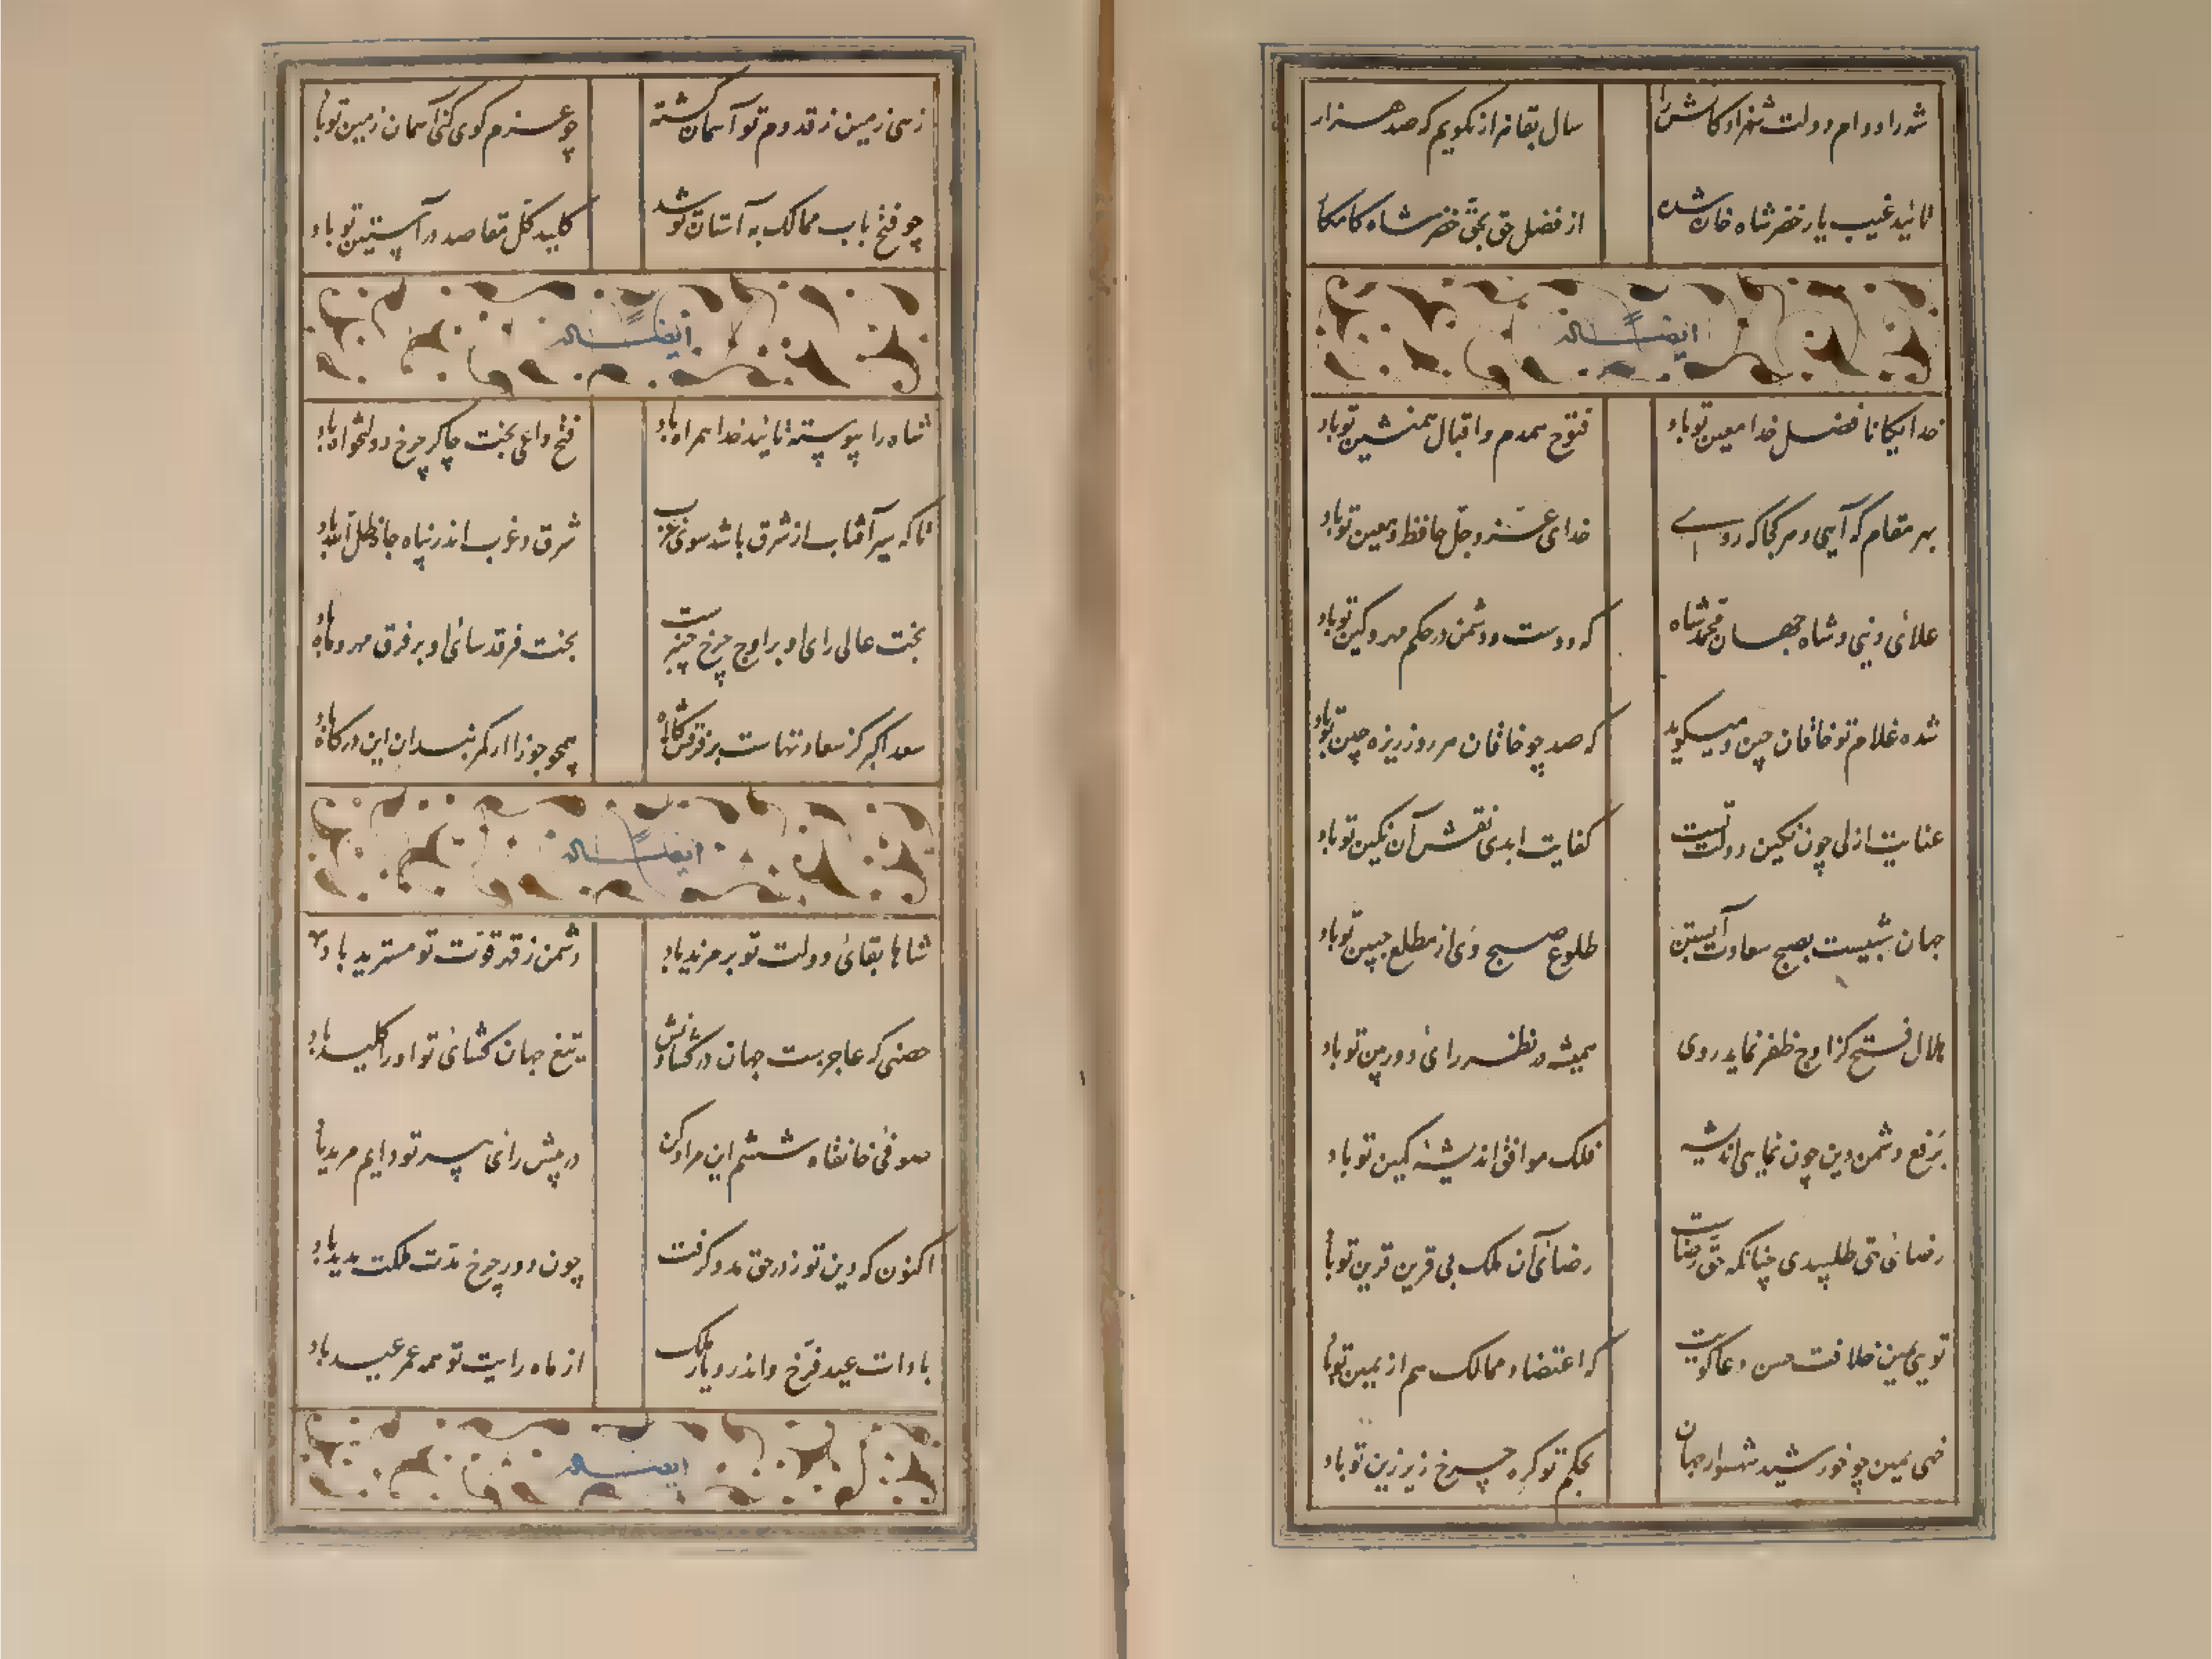 شه را دوام دولت شهزادگانش را سال بقا نه از نکویم که صد هزار
تائید غیب یار خضر شاه خان شده از فضل حق بحق خضر شاه کامکا
ایضاً له
خدایکانا فضل خدا معین تو باد فتوح همدم و اقبال همنشین تو باد
بهر مقام که آیی و هر کجا که روی خدای عز و جل حافظ و معین تو باد
علائی دنیی و شاه جهان محمد شاه که دوست و دشمن در حکم مهر و کین تو باد
شده غلام تو خاقان چین و میکوید که صد چو خاقان هر روز ریزه چین تو باد
عنایت ازلی چون نکین دولت تست کفایت ابدی نقش آن نکین تو باد
جهان شبیست بصبح سعادت آبستن طلوع صبح وی از مطلع جبین تو باد
هلال فتح کز اوج ظفر نماید روی همیشه در نظر رائی دوربین تو باد
برفع دشمن دین چون نمایی اندیشه فلک موافق اندیشهٔ کمین تو باد
رضائی حق طلبیدی چنانکه حق رضات رضائی آن ملک بی قرین قرین تو با
تویی یمین خلافت حسن دعا کویت که اعتضاد ممالک هم از یمین تو با
خهی یمین چو خورشید شهسوار جهان بحکم تو کره چرخ زیر زین تو باد
زهی زمین ز قدوم تو آسمان کشته چو عزم کوی کنی آسمان زمین تو با
چو فتح باب ممالک به آستان تو شد کلید کل مقاصد در آستین تو باد
ایضاً له
شاه را پیوسته تائید خدا همراه باد فتح داعی بخت چاکر چرخ دولتخواه باد
تا که سیر آفتاب از شرق باشد سوئی غرب شرق و غرب اندر پناه جاه ظل الله باد
بخت عالی رای او بر اوج چرخ چنبرست بخت فرقد سائی او بر فرق مهر و ماه باد
سعد اکبر کز سعادتهاست بر فرقش کلاه همچو جوزا از کمر بندان این درکاه باد
ایضاً له
شاها بقائی دولت تو بر مزید باد دشمن ز قهر قوت تو مسترید باد
حصنی که عاجزست جهان در کشادنش تیغ جهان کشائی تو او را کلید باد
صوفی خانقاه ششم این مراد کن در پیش رائی پیر تو دایم مرید با
اکنون که دین تو ز در حق مدد کرفت چون دور چرخ مدت ملکت مدید باد
بادات عید فرخ و اندر دیار ملک از ماه رایت تو همه عمر عید باد
ایضاً له